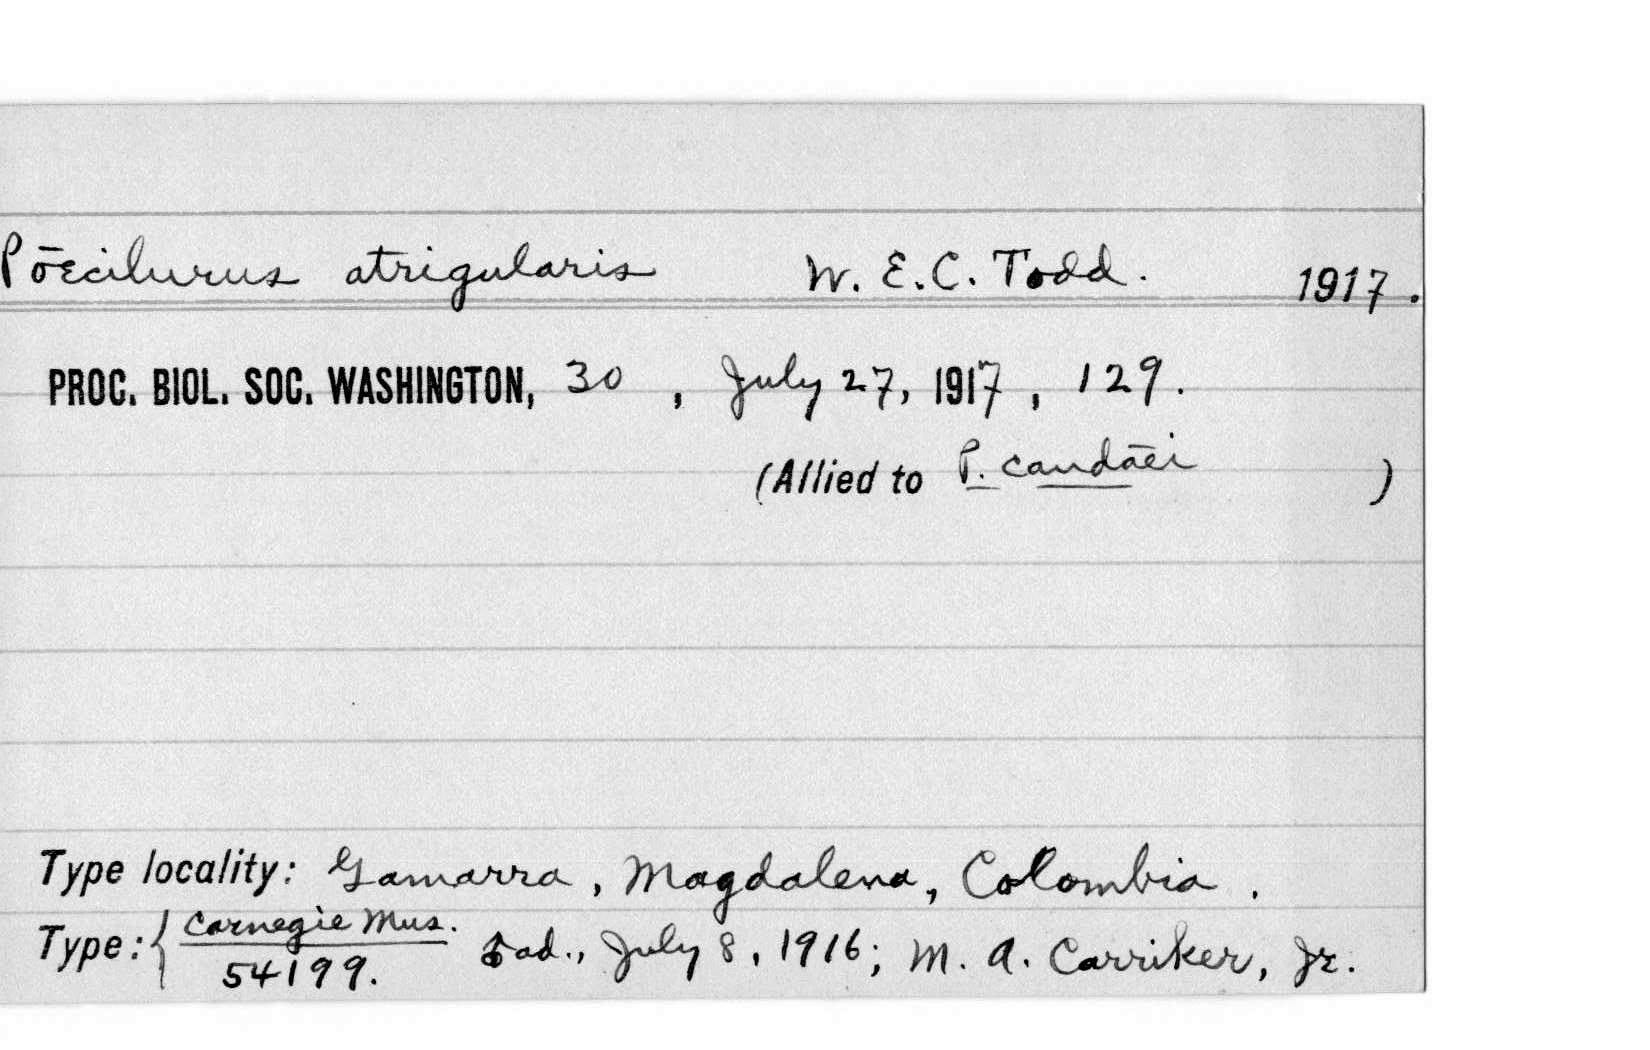 Pōecilurus atrigularis W. E. C. Todd. 1917.
PROC. BIOL. SOC. WASHINGTON, 30 , July 27, 1917 , 129.
(Allied to P. candāei )
Type locality: Gamarra, Magdalena, Colombia .
Type: { Carnegie Mus. ad., July 8, 1916; M. A. Carriker, Jr.
54199.